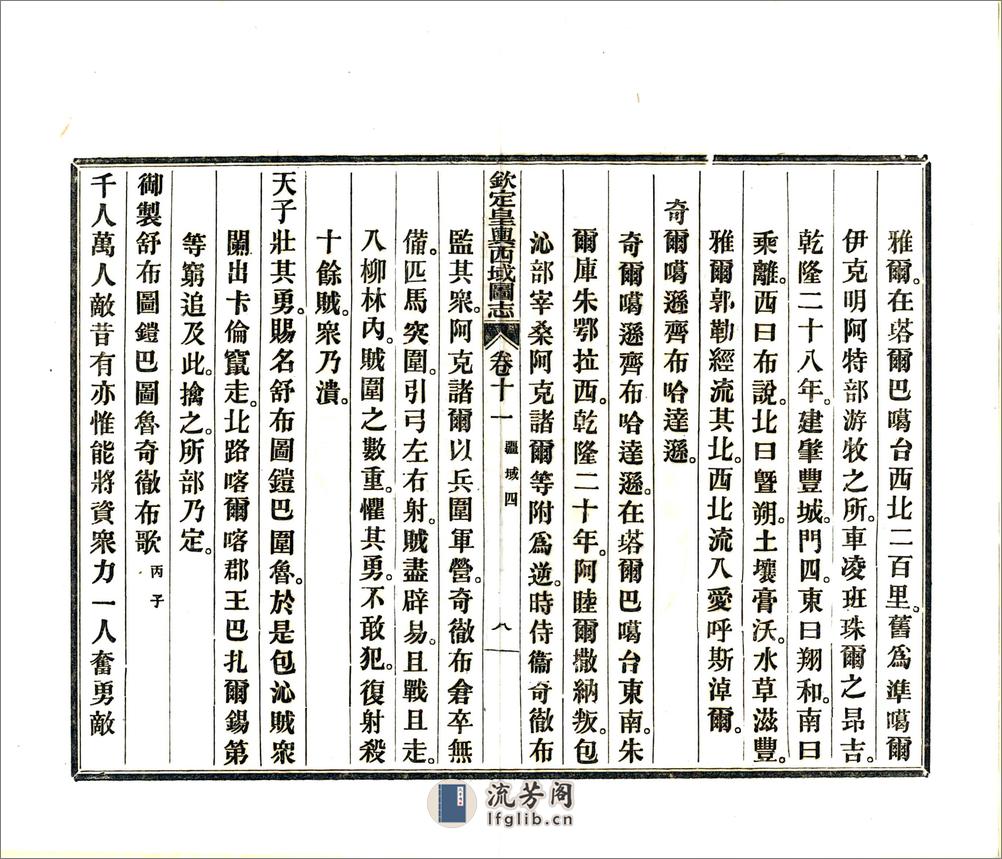 雅爾。在塔爾巴噶台西北二百里。舊爲準噶爾
伊克明阿特部游牧之所。車凌班珠爾之昂吉。
乾隆二十八年。建肇豐城。門四。東曰翔和。南曰
乘離。西曰布說。北曰曁朔。土壤膏沃。水草滋豐。
雅爾郭勒經流其北。西北流入愛呼斯淖爾。
奇爾噶遜齊布哈達遜。
奇爾噶遜齊布哈達遜。在塔爾巴噶台東南。朱
爾庫朱鄂拉西。乾隆二十年。阿睦爾撒納叛。包
沁部宰桑阿克諸爾等附爲逆。時侍衞奇徹布
欽定皇輿西域圖志 卷十一 疆域四 八
監其衆。阿克諸爾以兵圍軍營。奇徹布倉卒無
備。匹馬突圍。引弓左右射。賊盡辟易。且戰且走。
入柳林內。賊圍之數重。懼其勇。不敢犯。復射殺
十餘賊。衆乃潰。
天子壯其勇。賜名舒布圖鎧巴圖魯。於是包沁賊衆
闌出卡倫竄走。北路喀爾喀郡王巴扎爾錫第
等窮追及此。擒之。所部乃定。
御製舒布圖鎧巴圖魯奇徹布歌 丙子
千人萬人敵昔有亦惟能將資衆力一人奮勇敵
流芳阁
lfglib.cn